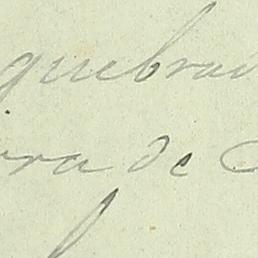 quebrad
rra de